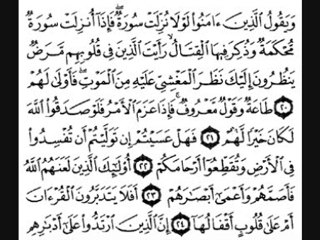 وَيَقُولُ الَّذِينَ ءَامَنُوا لَوْلَا نُزِّلَتْ سُورَةٌ فَإِذَا أُنزِلَتْ سُورَةٌ
مُّحْكَمَةٌ وَذُكِرَ فِيهَا الْقِتَالُ رَأَيْتَ الَّذِينَ فِي قُلُوبِهِم مَّرَضٌ
يَنظُرُونَ إِلَيْكَ نَظَرَ الْمَغْشِيِّ عَلَيْهِ مِنَ الْمَوْتِ فَأَوْلَىٰ لَهُمْ
۝٢٠ طَاعَةٌ وَقَوْلٌ مَّعْرُوفٌ فَإِذَا عَزَمَ الْأَمْرُ فَلَوْ صَدَقُوا اللَّهَ
لَكَانَ خَيْرًا لَّهُمْ ۝٢١ فَهَلْ عَسَيْتُمْ إِن تَوَلَّيْتُمْ أَن تُفْسِدُوا
فِي الْأَرْضِ وَتُقَطِّعُوا أَرْحَامَكُمْ ۝٢٢ أُولَٰئِكَ الَّذِينَ لَعَنَهُمُ اللَّهُ
فَأَصَمَّهُمْ وَأَعْمَىٰ أَبْصَارَهُمْ ۝٢٣ أَفَلَا يَتَدَبَّرُونَ الْقُرْءَانَ
أَمْ عَلَىٰ قُلُوبٍ أَقْفَالُهَا ۝٢٤ إِنَّ الَّذِينَ ارْتَدُّوا عَلَىٰ أَدْبَارِهِم